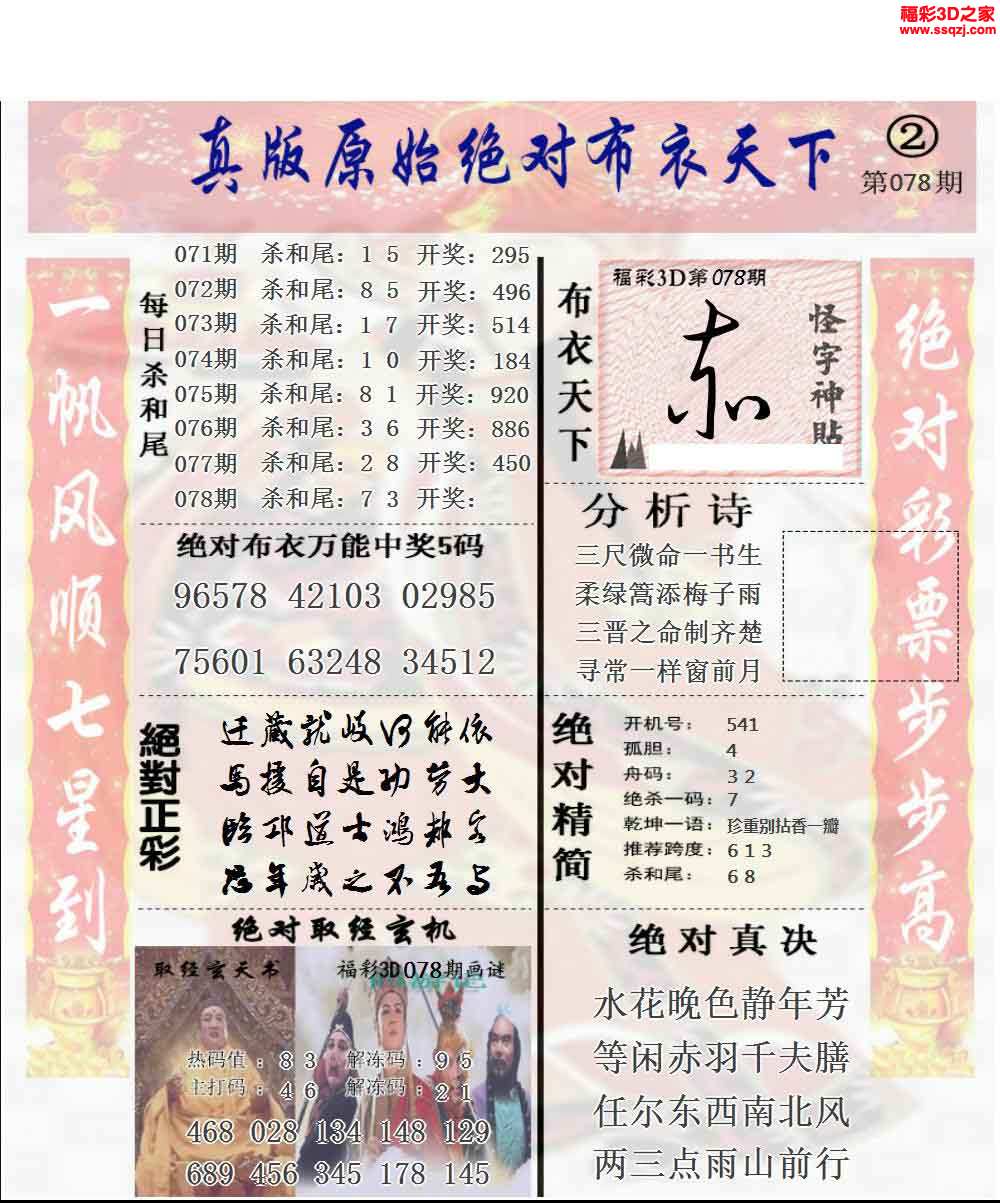 福彩3D之家
www.ssqzj.com
真版原始绝对布衣天下
②
第078期
一帆风顺七星到
每日杀和尾
071期 杀和尾：1 5 开奖：295
072期 杀和尾：8 5 开奖：496
073期 杀和尾：1 7 开奖：514
074期 杀和尾：1 0 开奖：184
075期 杀和尾：8 1 开奖：920
076期 杀和尾：3 6 开奖：886
077期 杀和尾：2 8 开奖：450
078期 杀和尾：7 3 开奖：
绝对布衣万能中奖5码
96578 42103 02985
75601 63248 34512
絕對正彩
迁藏就岐何能依
馬援自是功劳大
临邛道士鸿都客
忽年岁之不吾与
绝对取经玄机
取经玄天书
福彩3D078期画谜
热码值：8 3 解冻码：9 5
主打码：4 6 解冻码：2 1
468 028 134 148 129
689 456 345 178 145
布衣天下
福彩3D第078期
怪字神貼
分析诗
三尺微命一书生
柔绿篙添梅子雨
三晋之命制齐楚
寻常一样窗前月
绝对精简
开机号： 541
孤胆： 4
舟码： 3 2
绝杀一码：7
乾坤一语：珍重别拈香一瓣
推荐跨度：6 1 3
杀和尾： 6 8
绝对真决
水花晚色静年芳
等闲赤羽千夫膳
任尔东西南北风
两三点雨山前行
绝对彩票步步高